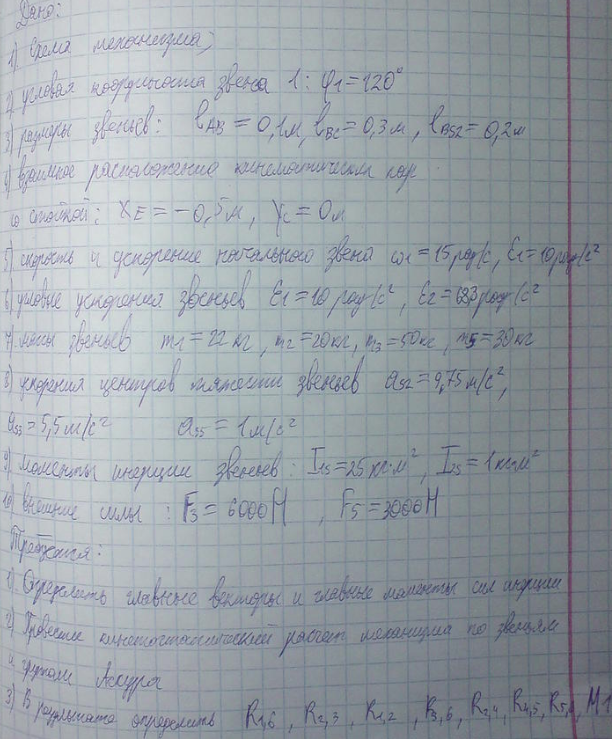 Дано:
1) Схема механизма;
2) угловая координата звена 1: φ1 = 120°
3) размеры звеньев: lAB = 0,1м, lBC = 0,3м, lBS2 = 0,2м
4) взаимное расположение кинематических пар
со стойкой: XE = -0,5м, YC = 0м
5) скорость и ускорение начального звена ω1 = 15 рад/с, ε1 = 10 рад/с²
6) угловые ускорения звеньев ε1 = 10 рад/с², ε2 = 683 рад/с²
7) массы звеньев m1 = 22 кг, m2 = 20кг, m3 = 50кг, m5 = 30кг
8) ускорения центров тяжести звеньев aS2 = 9,75 м/с²,
aS3 = 5,5 м/с² aS5 = 1 м/с²
9) моменты инерции звеньев: I1S = 25 кг·м², I2S = 1 кг·м²
10) внешние силы: F3 = 6000Н, F5 = 3000Н
Требуется:
1) Определить главные векторы и главные моменты сил инерции
2) Провести кинетостатический расчет механизма по звеньям
и группам Ассура
3) В результате определить R1,6, R2,3, R1,2, R3,6, R3,4, R4,5, M1